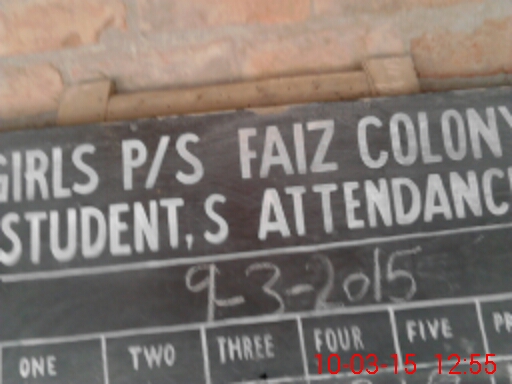 GIRLS P/S FAIZ COLONY
STUDENT,S ATTENDANC
9-3-2015
ONE TWO THREE FOUR FIVE
10-03-15 12:55